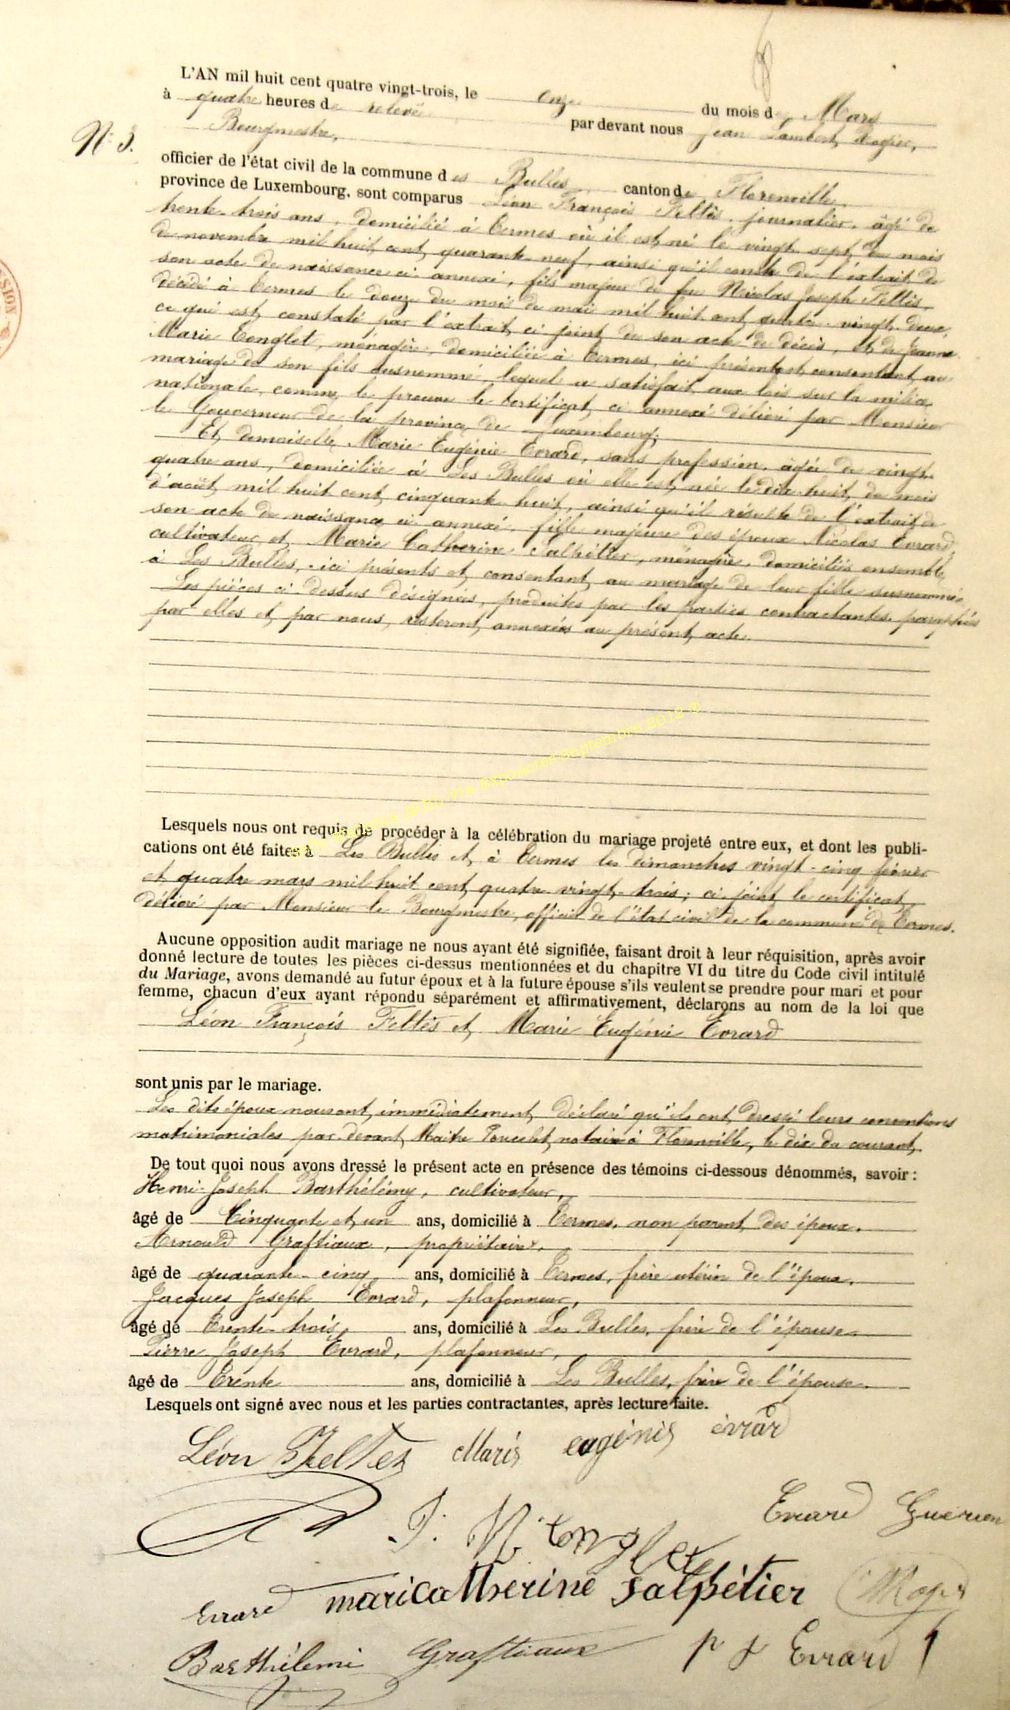 L'AN mil huit cent quatre vingt-trois, le onze du mois de Mars
à quatre heures de relevée par devant nous Jean Lambert
N° 3.
Bourgmestre,
officier de l'état civil de la commune des Bulles canton de Florenville,
province de Luxembourg, sont comparus Léon François Feltès, journalier, âgé de
trente-trois ans, domicilié à Termes où il est né le vingt sept du mois
de novembre mil huit cent quarante neuf, ainsi qu'il conste de l'extrait de
son acte de naissance ci annexé, fils majeur de feu Nicolas Joseph Feltès,
décédé à Termes le douze du mois de mai mil huit cent quatre-vingt deux,
ce qui est constaté par l'extrait ci joint de son acte de décès, et de Jeanne
Marie Tonglet, ménagère, domiciliée à Termes, ici présente et consentant au
mariage de son fils susnommé, lequel a satisfait aux lois sur la milice
nationale, comme le prouve le certificat ci annexé délivré par Monsieur
le Gouverneur de la province de Luxembourg;
Et demoiselle Marie Eugénie Evrard, sans profession, âgée de vingt-
quatre ans, domiciliée à Les Bulles où elle est née le dix huit du mois
d'août mil huit cent cinquante huit, ainsi qu'il résulte de l'extrait de
son acte de naissance ci annexé, fille majeure des époux Nicolas Evrard,
cultivateur et Marie Catherine Salpétier, ménagère, domiciliés ensemble
à Les Bulles, ici présents et consentant au mariage de leur fille susnommée.
Les pièces ci dessus désignées, produites par les parties contractantes, paraphées
par elles et par nous, resteront annexées au présent acte.
Lesquels nous ont requis de procéder à la célébration du mariage projeté entre eux, et dont les publi-
cations ont été faites à Les Bulles et à Termes les dimanches vingt-cinq février
et quatre mars mil huit cent quatre-vingt-trois; ci joint le certificat
délivré par Monsieur le Bourgmestre, officier de l'état civil de la commune de Termes.
Aucune opposition audit mariage ne nous ayant été signifiée, faisant droit à leur réquisition, après avoir
donné lecture de toutes les pièces ci-dessus mentionnées et du chapitre VI du titre du Code civil intitulé
du Mariage, avons demandé au futur époux et à la future épouse s'ils veulent se prendre pour mari et pour
femme, chacun d'eux ayant répondu séparément et affirmativement, déclarons au nom de la loi que
Léon François Feltès et Marie Eugénie Evrard
sont unis par le mariage.
Les dits époux nous ont immédiatement déclaré qu'ils ont dressé leurs conventions
matrimoniales par devant Maître Poncelet notaire à Florenville, le dix du courant.
De tout quoi nous avons dressé le présent acte en présence des témoins ci-dessous dénommés, savoir :
Henri-Joseph Barthélémy, cultivateur,
âgé de Cinquante et un ans, domicilié à Termes, non parent des époux.
Arnould Graftiaux, propriétaire,
âgé de quarante-cinq ans, domicilié à Termes, frère utérin de l'époux,
Jacques Joseph Evrard, plafonneur,
âgé de Trente-trois ans, domicilié à Les Bulles, frère de l'épouse.
Pierre Joseph Evrard, plafonneur,
âgé de Trente ans, domicilié à Les Bulles, frère de l'épouse.
Lesquels ont signé avec nous et les parties contractantes, après lecture faite.
Léon Feltez Marie eugénie évrard
J. M. Tonglet Evrard
Evrard maricatherine salpétier
Barthélemi Graftiaux p J Evrard